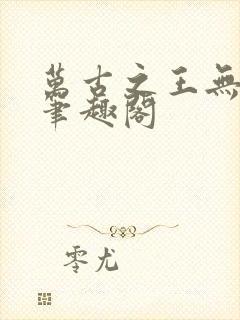 萬古之王無
筆趣閣
零尤